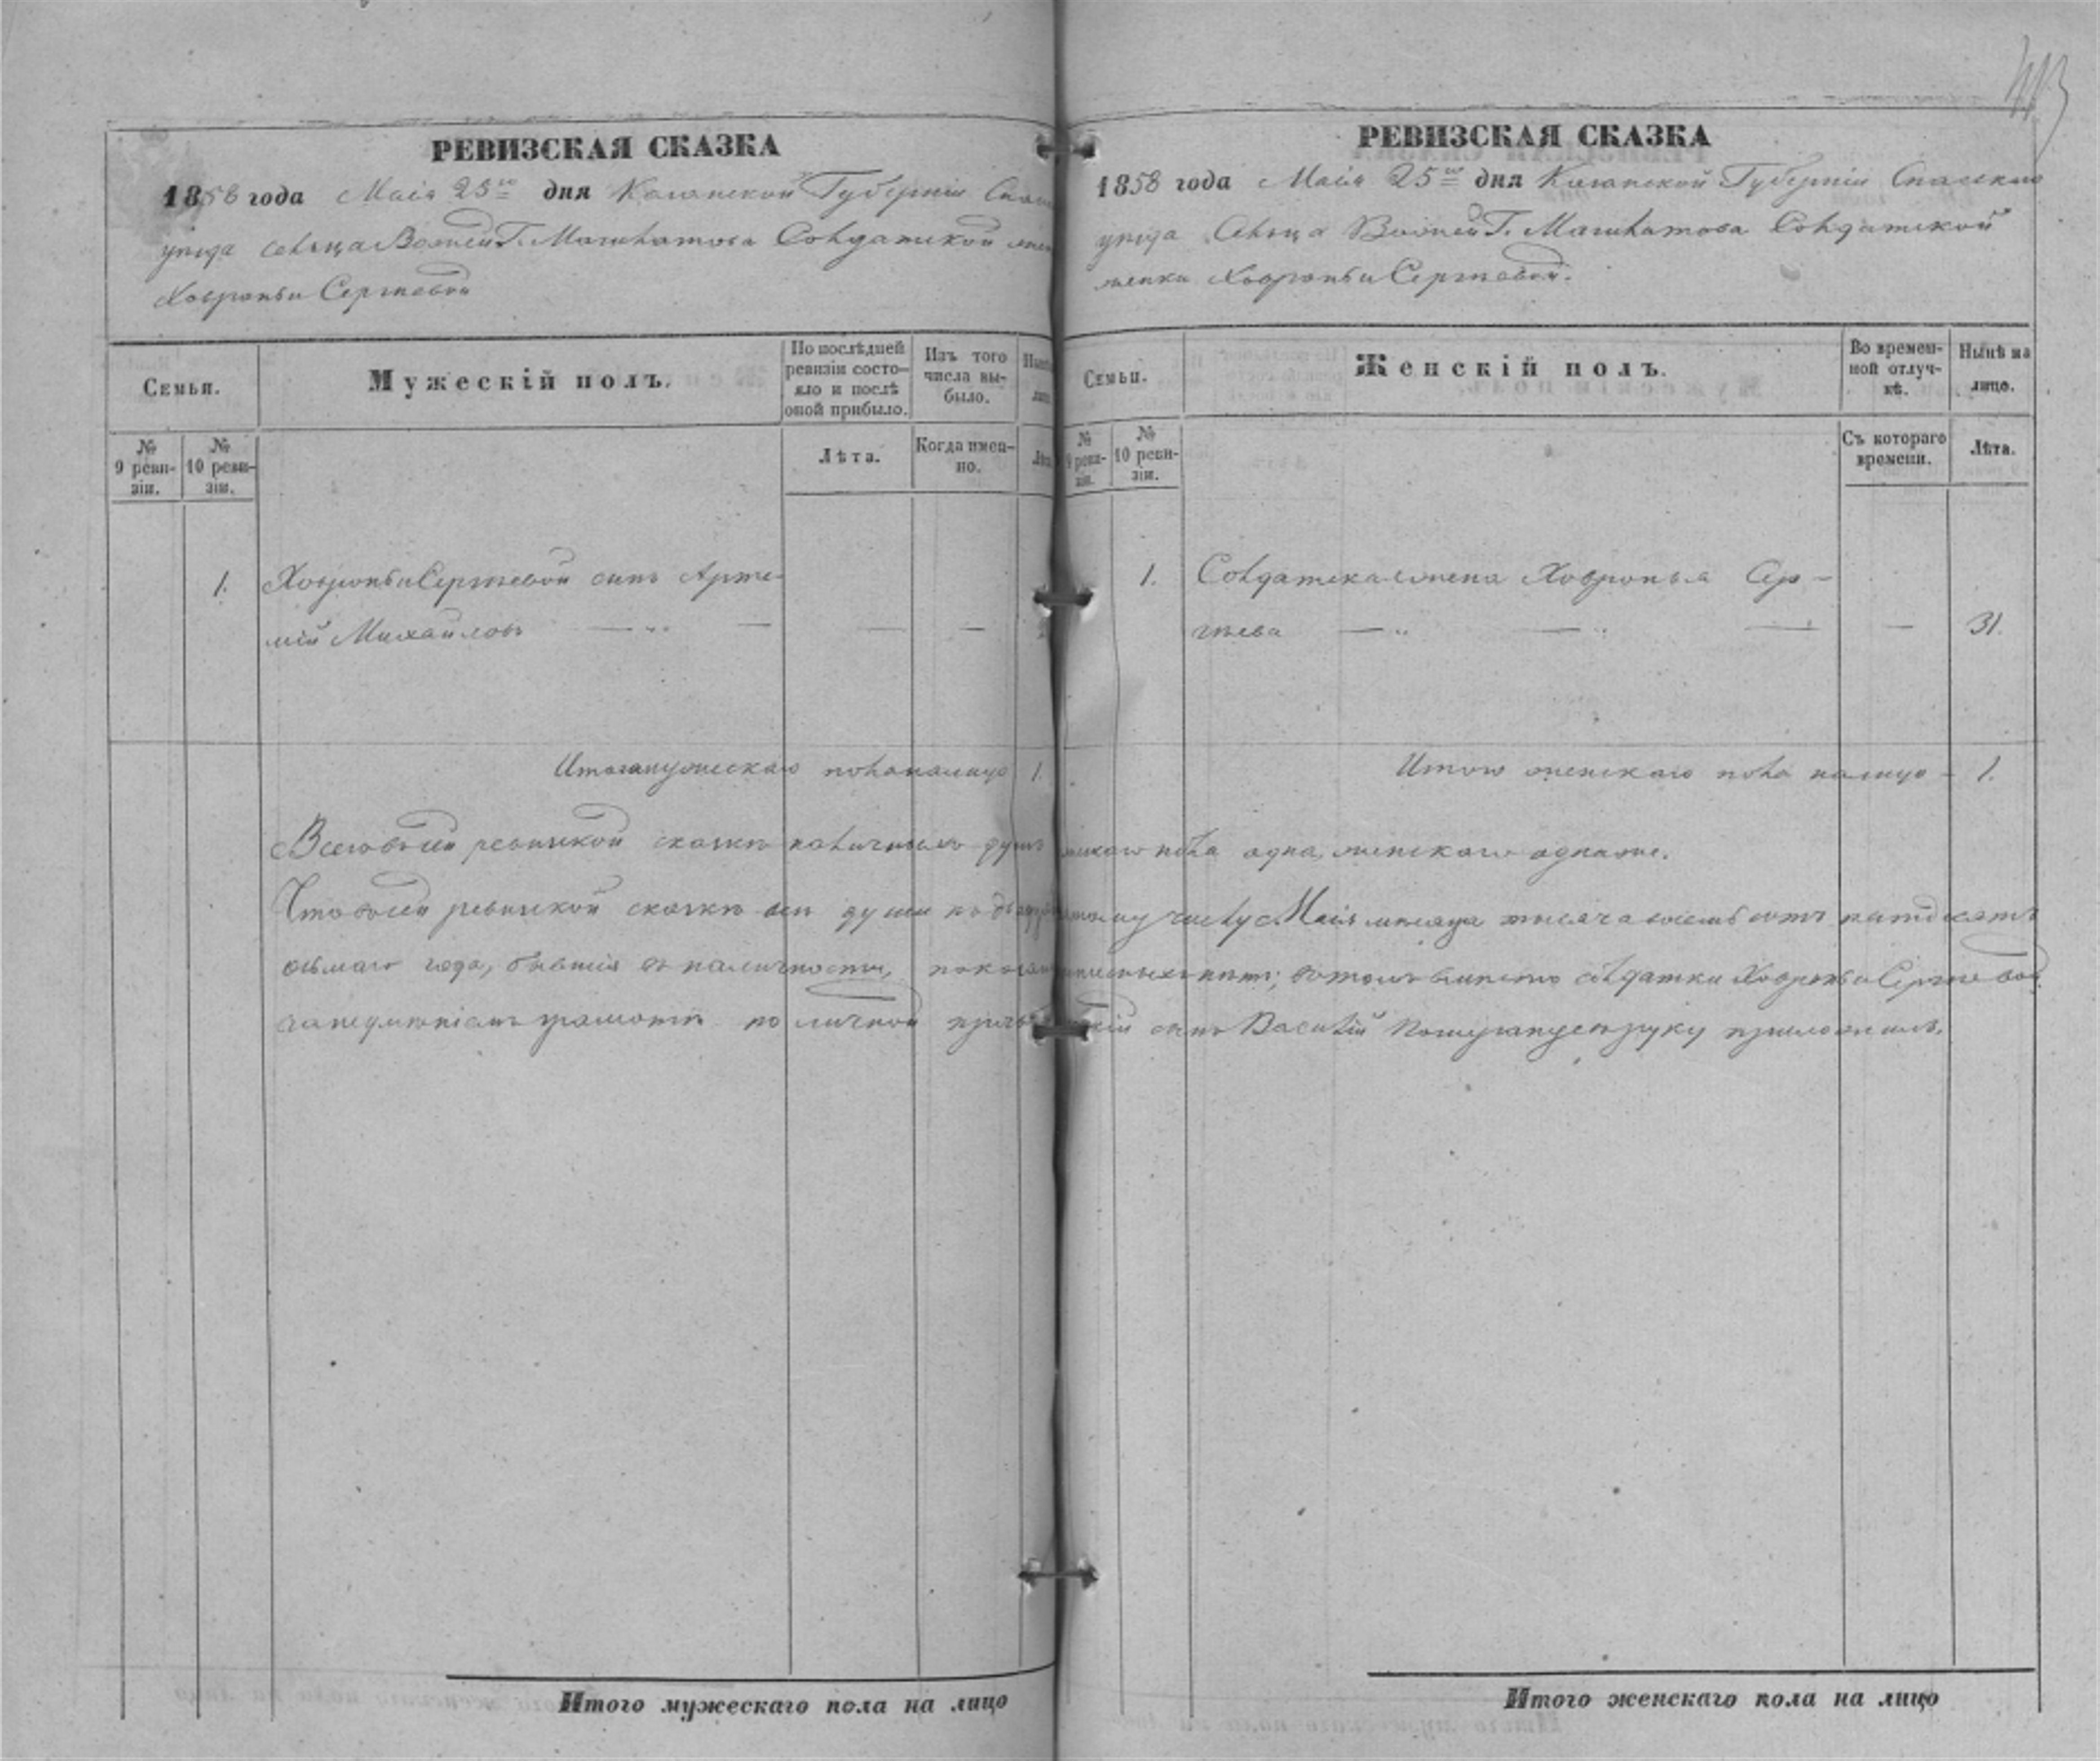 РЕВИЗСКАЯ СКАЗКА
1858 года Маія 25го дня Казанской Губерніи
уѣзда сельца Г. Солдатской
Хавроньи Сергѣевой
Семьи.
Мужескій полъ.
По послѣдней
ревизіи состо-
яло и послѣ
оной прибыло.
Изъ того
числа вы-
было.
№
9 реви-
зіи.
№
10 реви-
зіи.
Лѣта.
Когда имен-
но.
1. Хавроньи Сергѣевой сынъ Арте-
мій Михайловъ — „ — — —
Итого мужескаго пола на лицо 1.
РЕВИЗСКАЯ СКАЗКА
1858 года Маія 25го дня Казанской Губерніи Спаскаго
уѣзда Сельца Г. Солдатской
женки Хавроньи Сергѣевой.
Семьи.
Женскій полъ.
Во времен-
ной отлуч-
кѣ.
Нынѣ на
лицо.
№
9 реви-
зіи.
№
10 реви-
зіи.
Съ котораго
времени.
Лѣта.
1. Солдатская жена Хавронья Сер-
гѣева — „ — „ — — 31.
Итого женскаго пола на лицо — 1.
Всего въ сей ревизской сказкѣ наличныхъ душъ пола одна, женскаго одна же.
Что въ сей ревизской сказкѣ всѣ души къ числу Маія мѣсяца тысяча восемь сотъ пятдесятъ
осьмаго года, бывшія въ наличности, нѣтъ; въ томъ вмѣсто солдатки Хавроньи Сергѣевой
за неумѣніемъ грамотѣ по личной сынъ Василій руку приложилъ.
Итого мужескаго пола на лицо
Итого женскаго пола на лицо